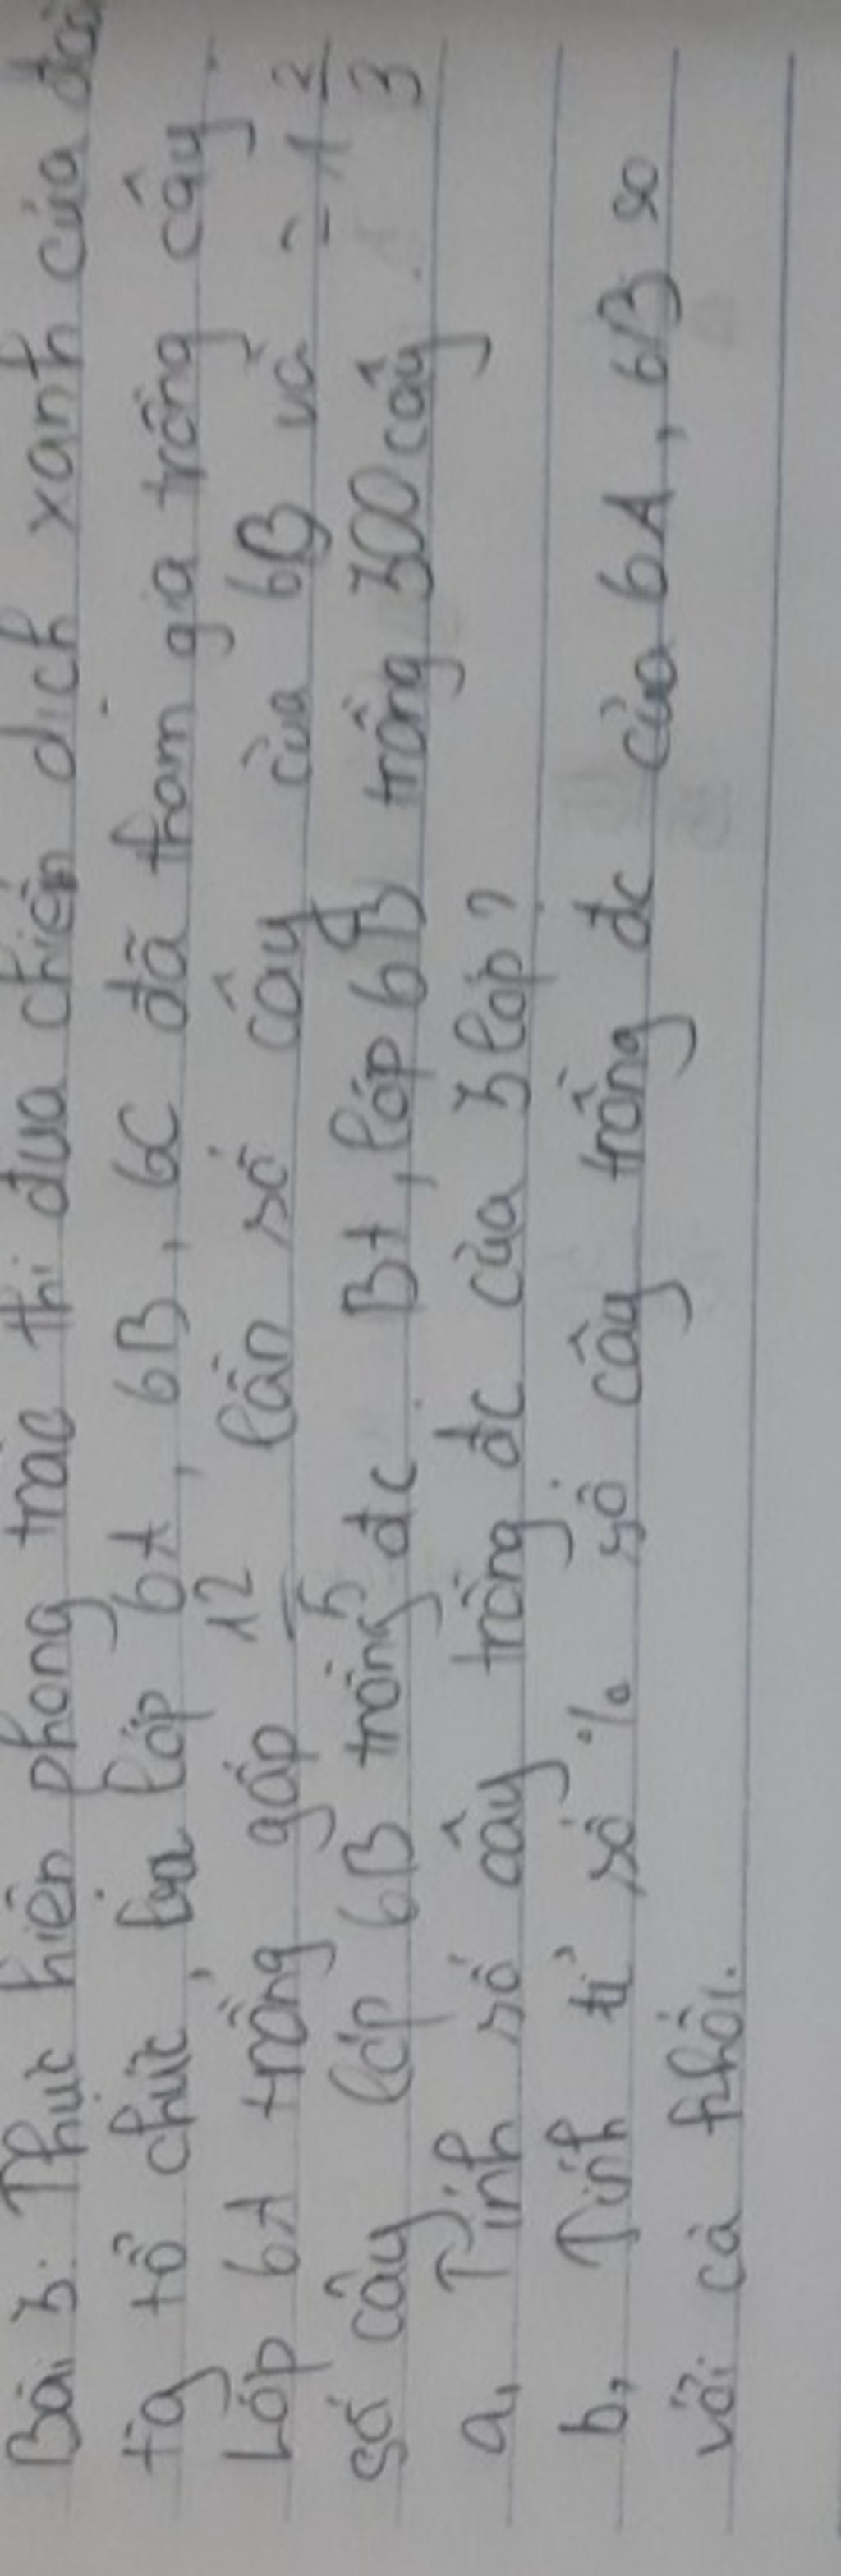 Bài 3. Thực hiện phong trào thi đua chiến dịch xanh của
tg tổ chức, ba lớp 6A, 6B, 6C đã tham gia trồng cây.
Lớp 6A trồng gấp 12/5 lần số cây của 6B và = 1 2/3
số cây lớp 6B trồng đc. Bt, lớp 6B trồng 300 cây.
a, Tính số cây trồng đc của 3 lớp?
b, Tính tỉ số % số cây trồng đc của 6A, 6B so
với cả khối.